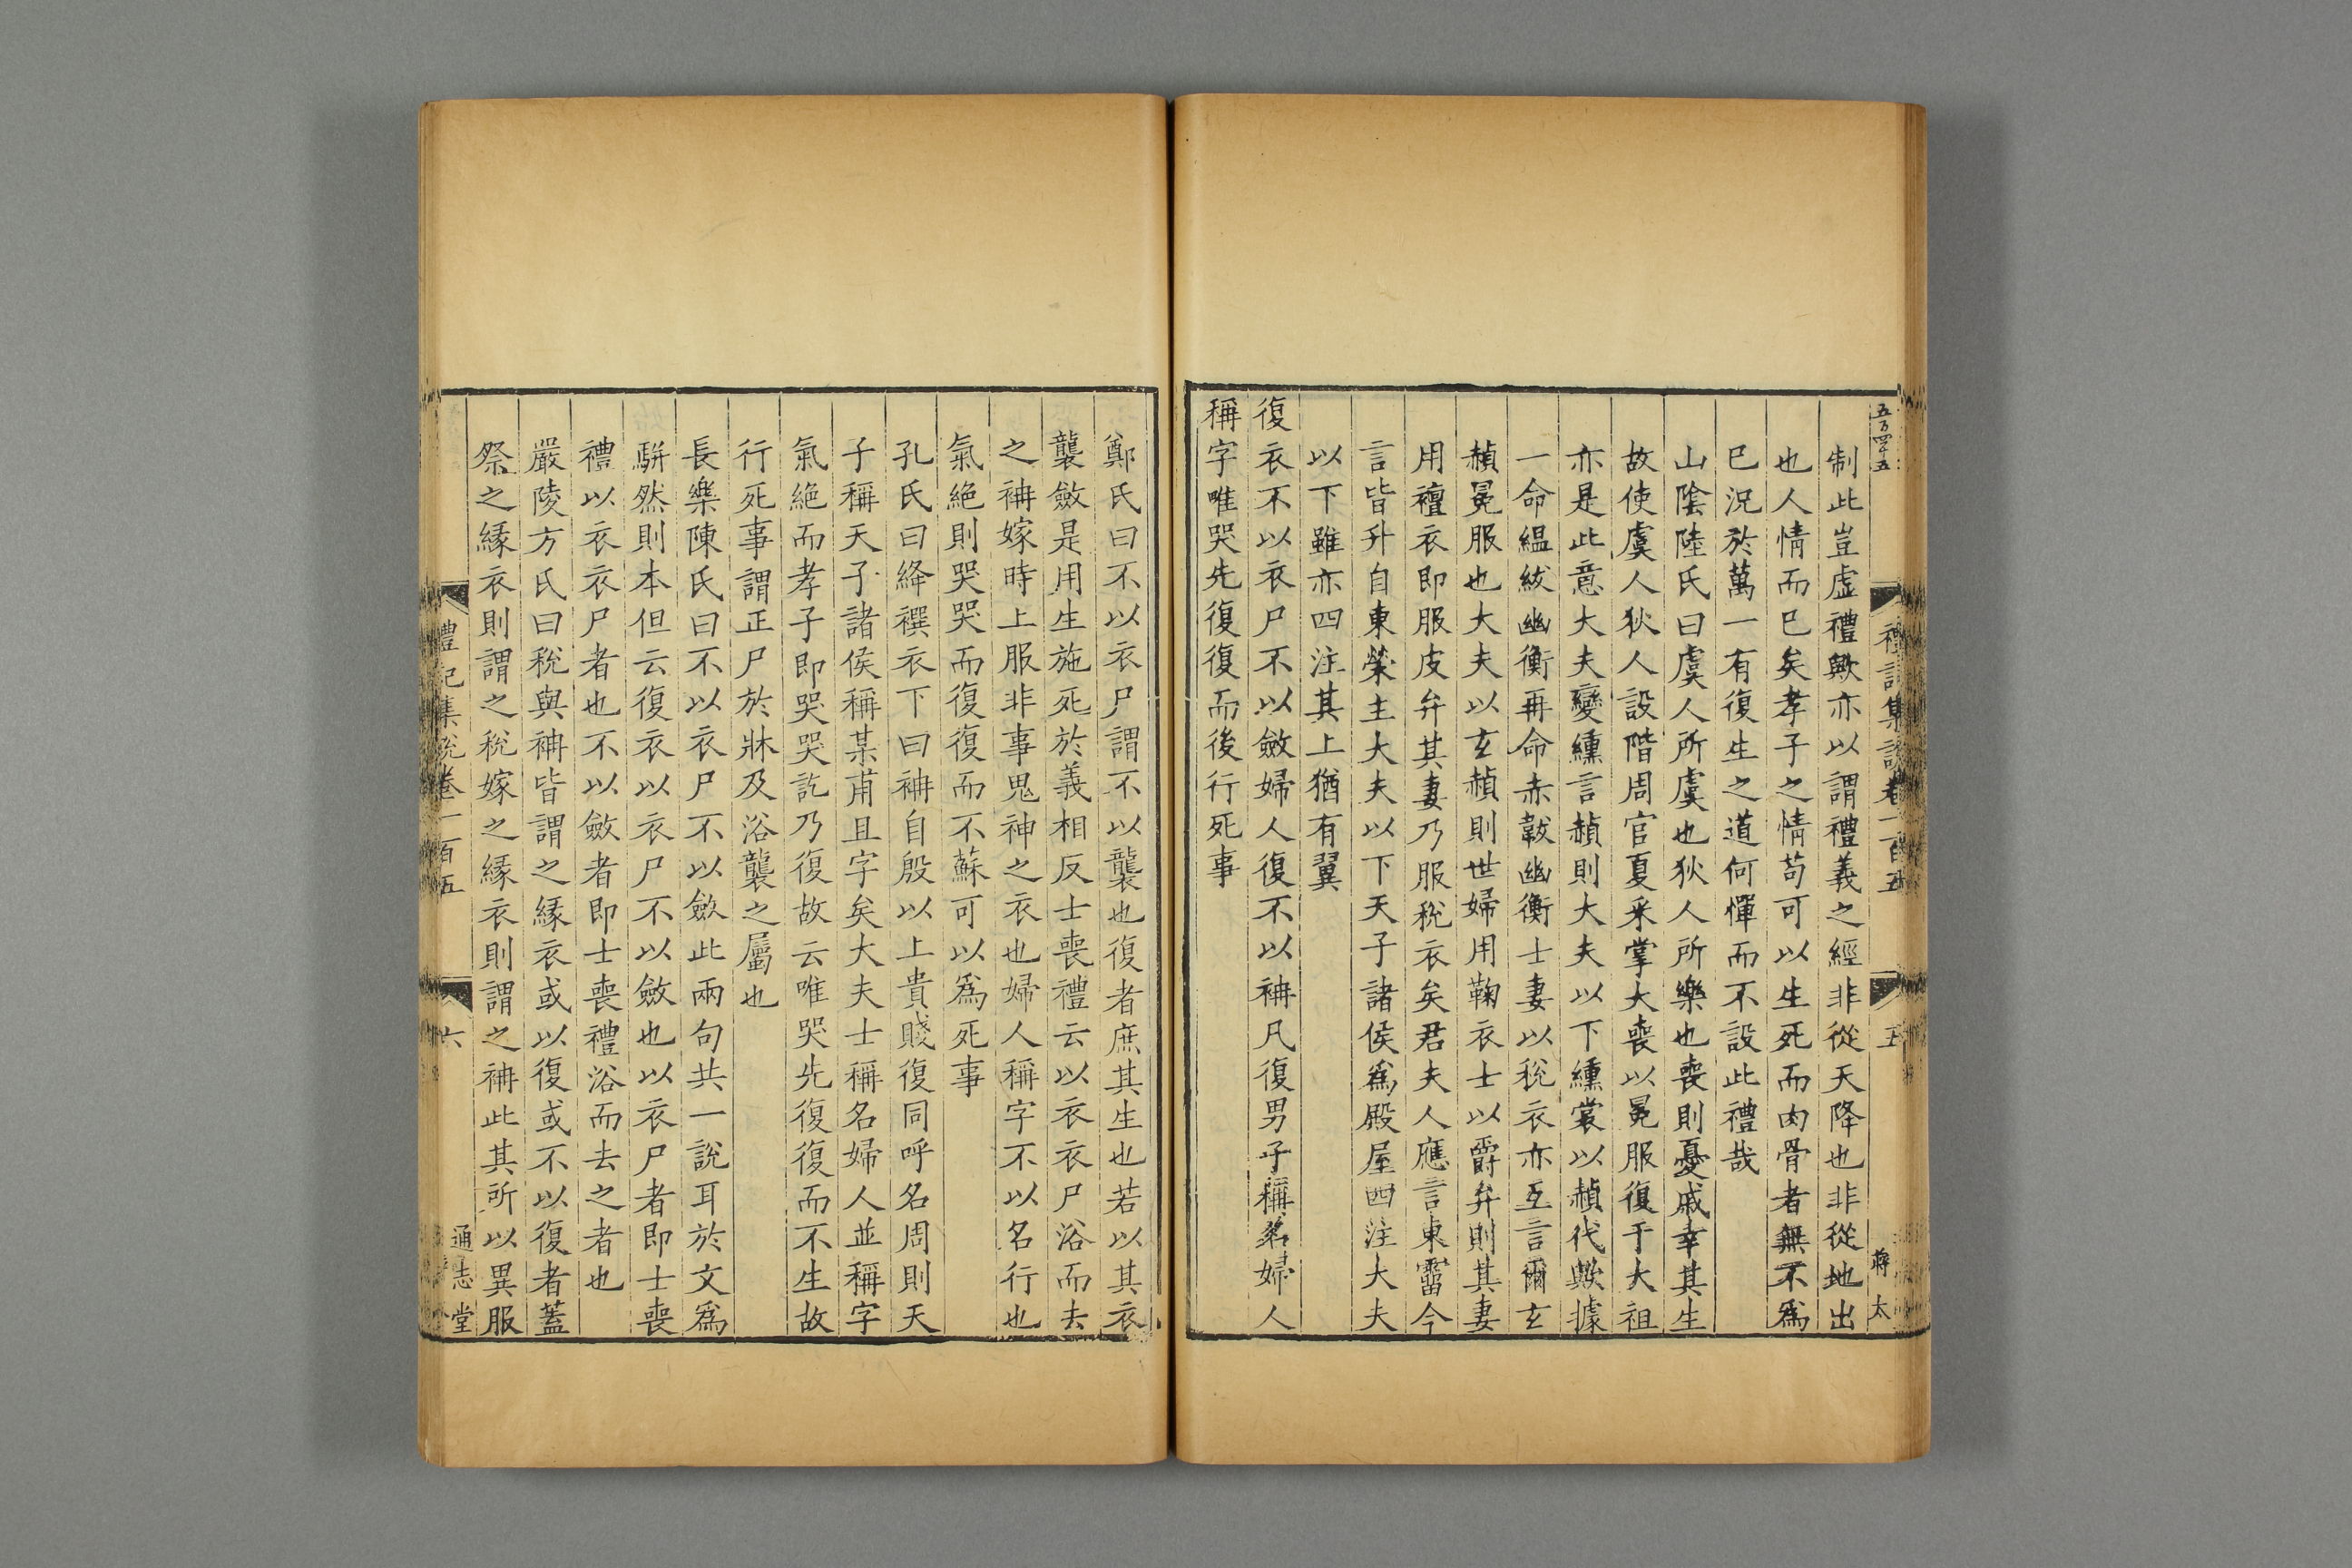 五百四十五
禮記集說卷一百五
五
蔣太
制此豈虛禮歟亦以謂禮義之經非從天降也非從地出
也人情而已矣孝子之情苟可以生死而肉骨者無不爲
已況於萬一有復生之道何憚而不設此禮哉
山陰陸氏曰虞人所虞也狄人所樂也喪則憂戚幸其生
故使虞人狄人設階周官夏采掌大喪以冕服復于大祖
亦是此意大夫變纁言赬則大夫以下纁裳以赬代歟據
一命緼紱幽衡再命赤韍幽衡士妻以稅衣亦互言爾玄
赬冕服也大夫以玄赬則世婦用鞠衣士以爵弁則其妻
用襢衣即服皮弁其妻乃服稅衣矣君夫人應言東霤今
言皆升自東榮主大夫以下天子諸侯爲殿屋四注大夫
以下雖亦四注其上猶有翼
復衣不以衣尸不以斂婦人復不以袡凡復男子稱名婦人
稱字唯哭先復復而後行死事
鄭氏曰不以衣尸謂不以襲也復者庶其生也若以其衣
襲斂是用生施死於義相反士喪禮云以衣衣尸浴而去
之袡嫁時上服非事鬼神之衣也婦人稱字不以名行也
氣絶則哭哭而復復而不蘇可以爲死事
孔氏曰絳襈衣下曰袡自殷以上貴賤復同呼名周則天
子稱天子諸侯稱某甫且字矣大夫士稱名婦人並稱字
氣絶而孝子即哭哭訖乃復故云唯哭先復復而不生故
行死事謂正尸於牀及浴襲之屬也
長樂陳氏曰不以衣尸不以斂此兩句共一說耳於文爲
駢然則本但云復衣以衣尸不以斂也以衣尸者即士喪
禮以衣衣尸者也不以斂者即士喪禮浴而去之者也
嚴陵方氏曰稅與袡皆謂之緣衣或以復或不以復者蓋
祭之緣衣則謂之稅嫁之緣衣則謂之袡此其所以異服
禮記集說卷一百五
六
通志堂